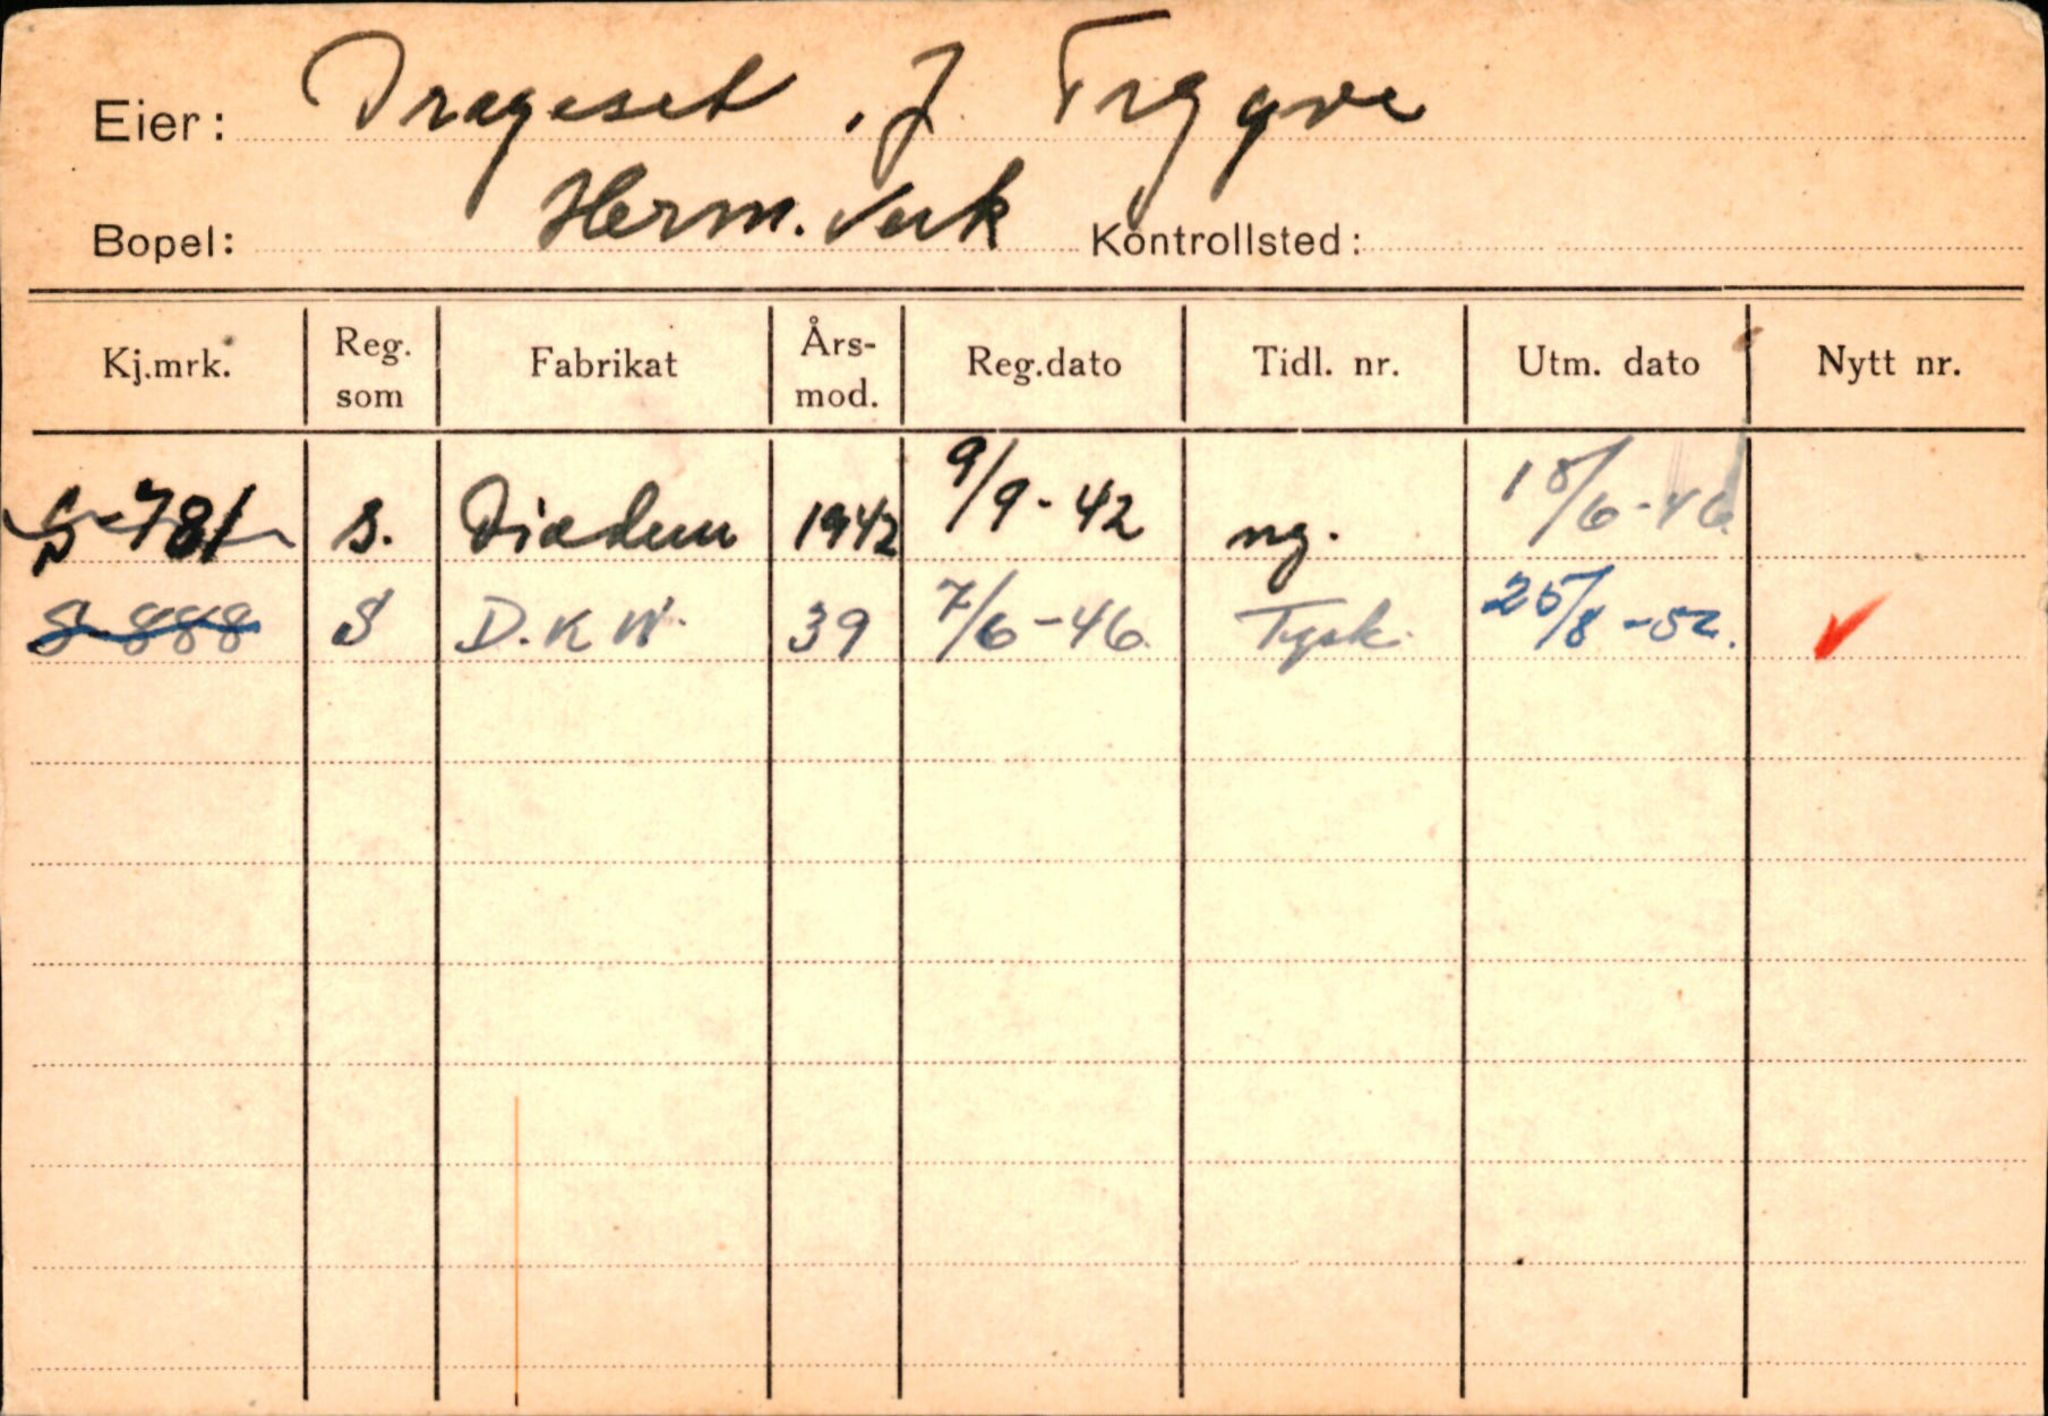 Eier: Drageset, J. Trygve
Bopel: Herm.verk Kontrollsted:
Kj.mrk. Reg. som Fabrikat Års-mod. Reg.dato Tidl. nr. Utm. dato Nytt nr.
S-781 S. Diadem 1942 9/9-42 ny. 18/6-46
S-888 S D.K.W. 39 7/6-46 Tysk. 25/8-52.